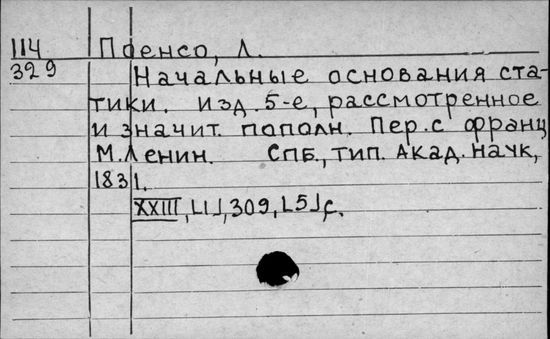 114 Поенсо, Л.
329 Начальные основания ста-
тики. изд. 5-е, рассмотренное
и значит. пополн. Пер. с франц
М. Ленин. СПБ., тип. Акад. наук,
1831.
XXIII, [1], 309, [5] с.